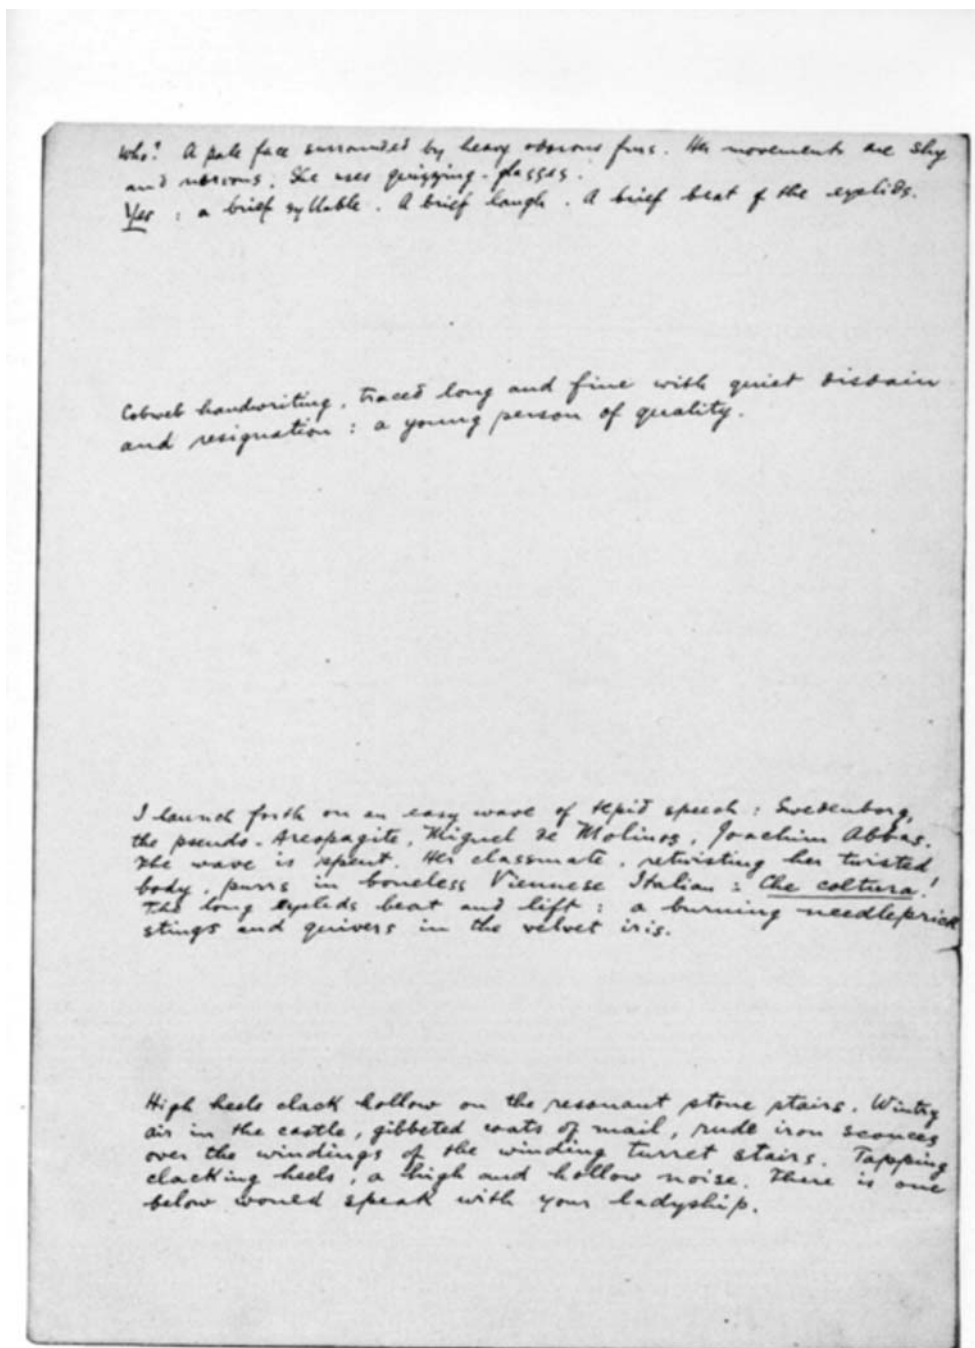 Who? A pale face surrounded by heavy odorous furs. Her movements are shy
and nervous. She uses quizzing-glasses.
Yes: a brief syllable. A brief laugh. A brief beat of the eyelids.
Cobweb handwriting, traced long and fine with quiet disdain
and resignation: a young person of quality.
I launch forth on an easy wave of tepid speech: Swedenborg,
the pseudo-Areopagite, Miguel de Molinos, Joachim Abbas.
The wave is spent. Her classmate, retwisting her twisted
body, purrs in boneless Viennese Italian: Che coltura!
The long eyelids beat and lift: a burning needleprick
stings and quivers in the velvet iris.
High heels clack hollow on the resonant stone stairs. Wintry
air in the castle, gibbeted coats of mail, rude iron sconces
over the windings of the winding turret stairs. Tapping
clacking heels, a high and hollow noise. There is one
below would speak with your ladyship.